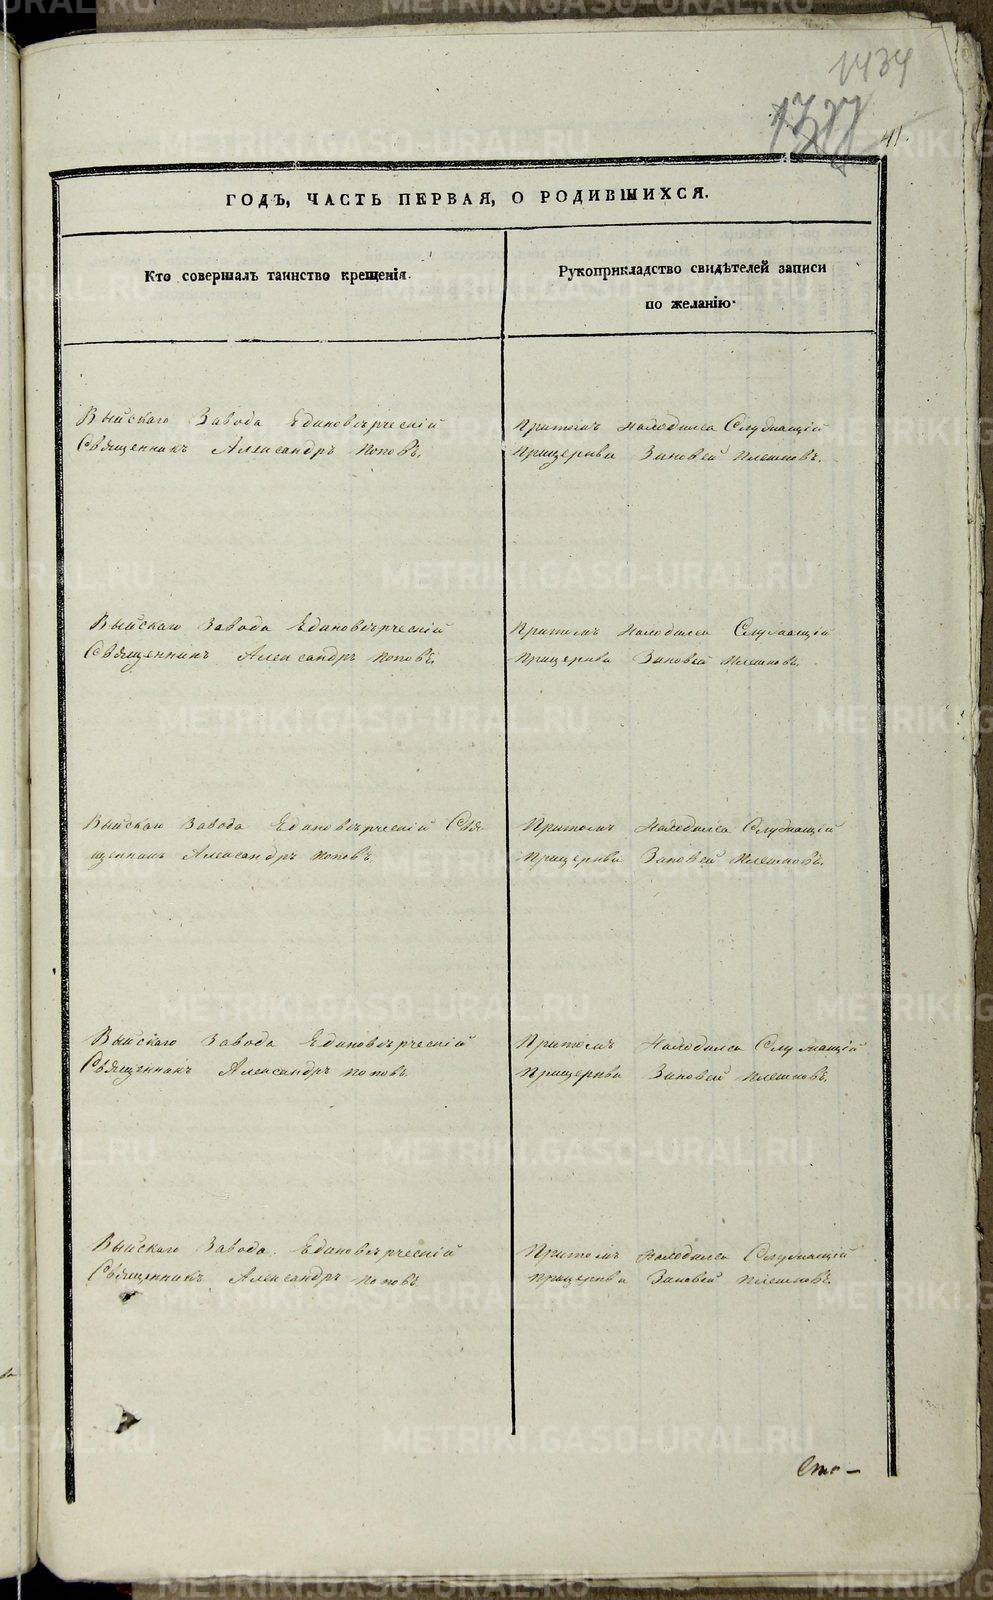 1434
41.
ГОДЪ, ЧАСТЬ ПЕРВАЯ, О РОДИВШИХСЯ.
Кто совершалъ таинство крещенія.
Рукоприкладство свидѣтелей записи
по желанію.
Выйскаго Завода Единовѣрческій
Священникъ Александръ Поповъ.
Притомъ находился Служащій
Прицеркви Зиновей Плешковъ.
Выйскаго Завода Единовѣрческій
Священникъ Александръ Поповъ.
Притомъ находился Служащій
Прицеркви Зиновей Плешковъ.
Выйскаго Завода Единовѣрческій Свя
щенникъ Александръ Поповъ.
Притомъ находился Служащій
Прицеркви Зиновей Плешковъ.
Выйскаго Завода Единовѣрческій
Священникъ Александръ Поповъ
Притомъ находился Служащій
Прицеркви Зиновей Плешковъ.
Выйскаго Завода Единовѣрческій
Священникъ Александръ Поповъ
Притомъ находился Служащій
Прицеркви Зиновей Плешковъ.
METRIKI.GASO-URAL.RU